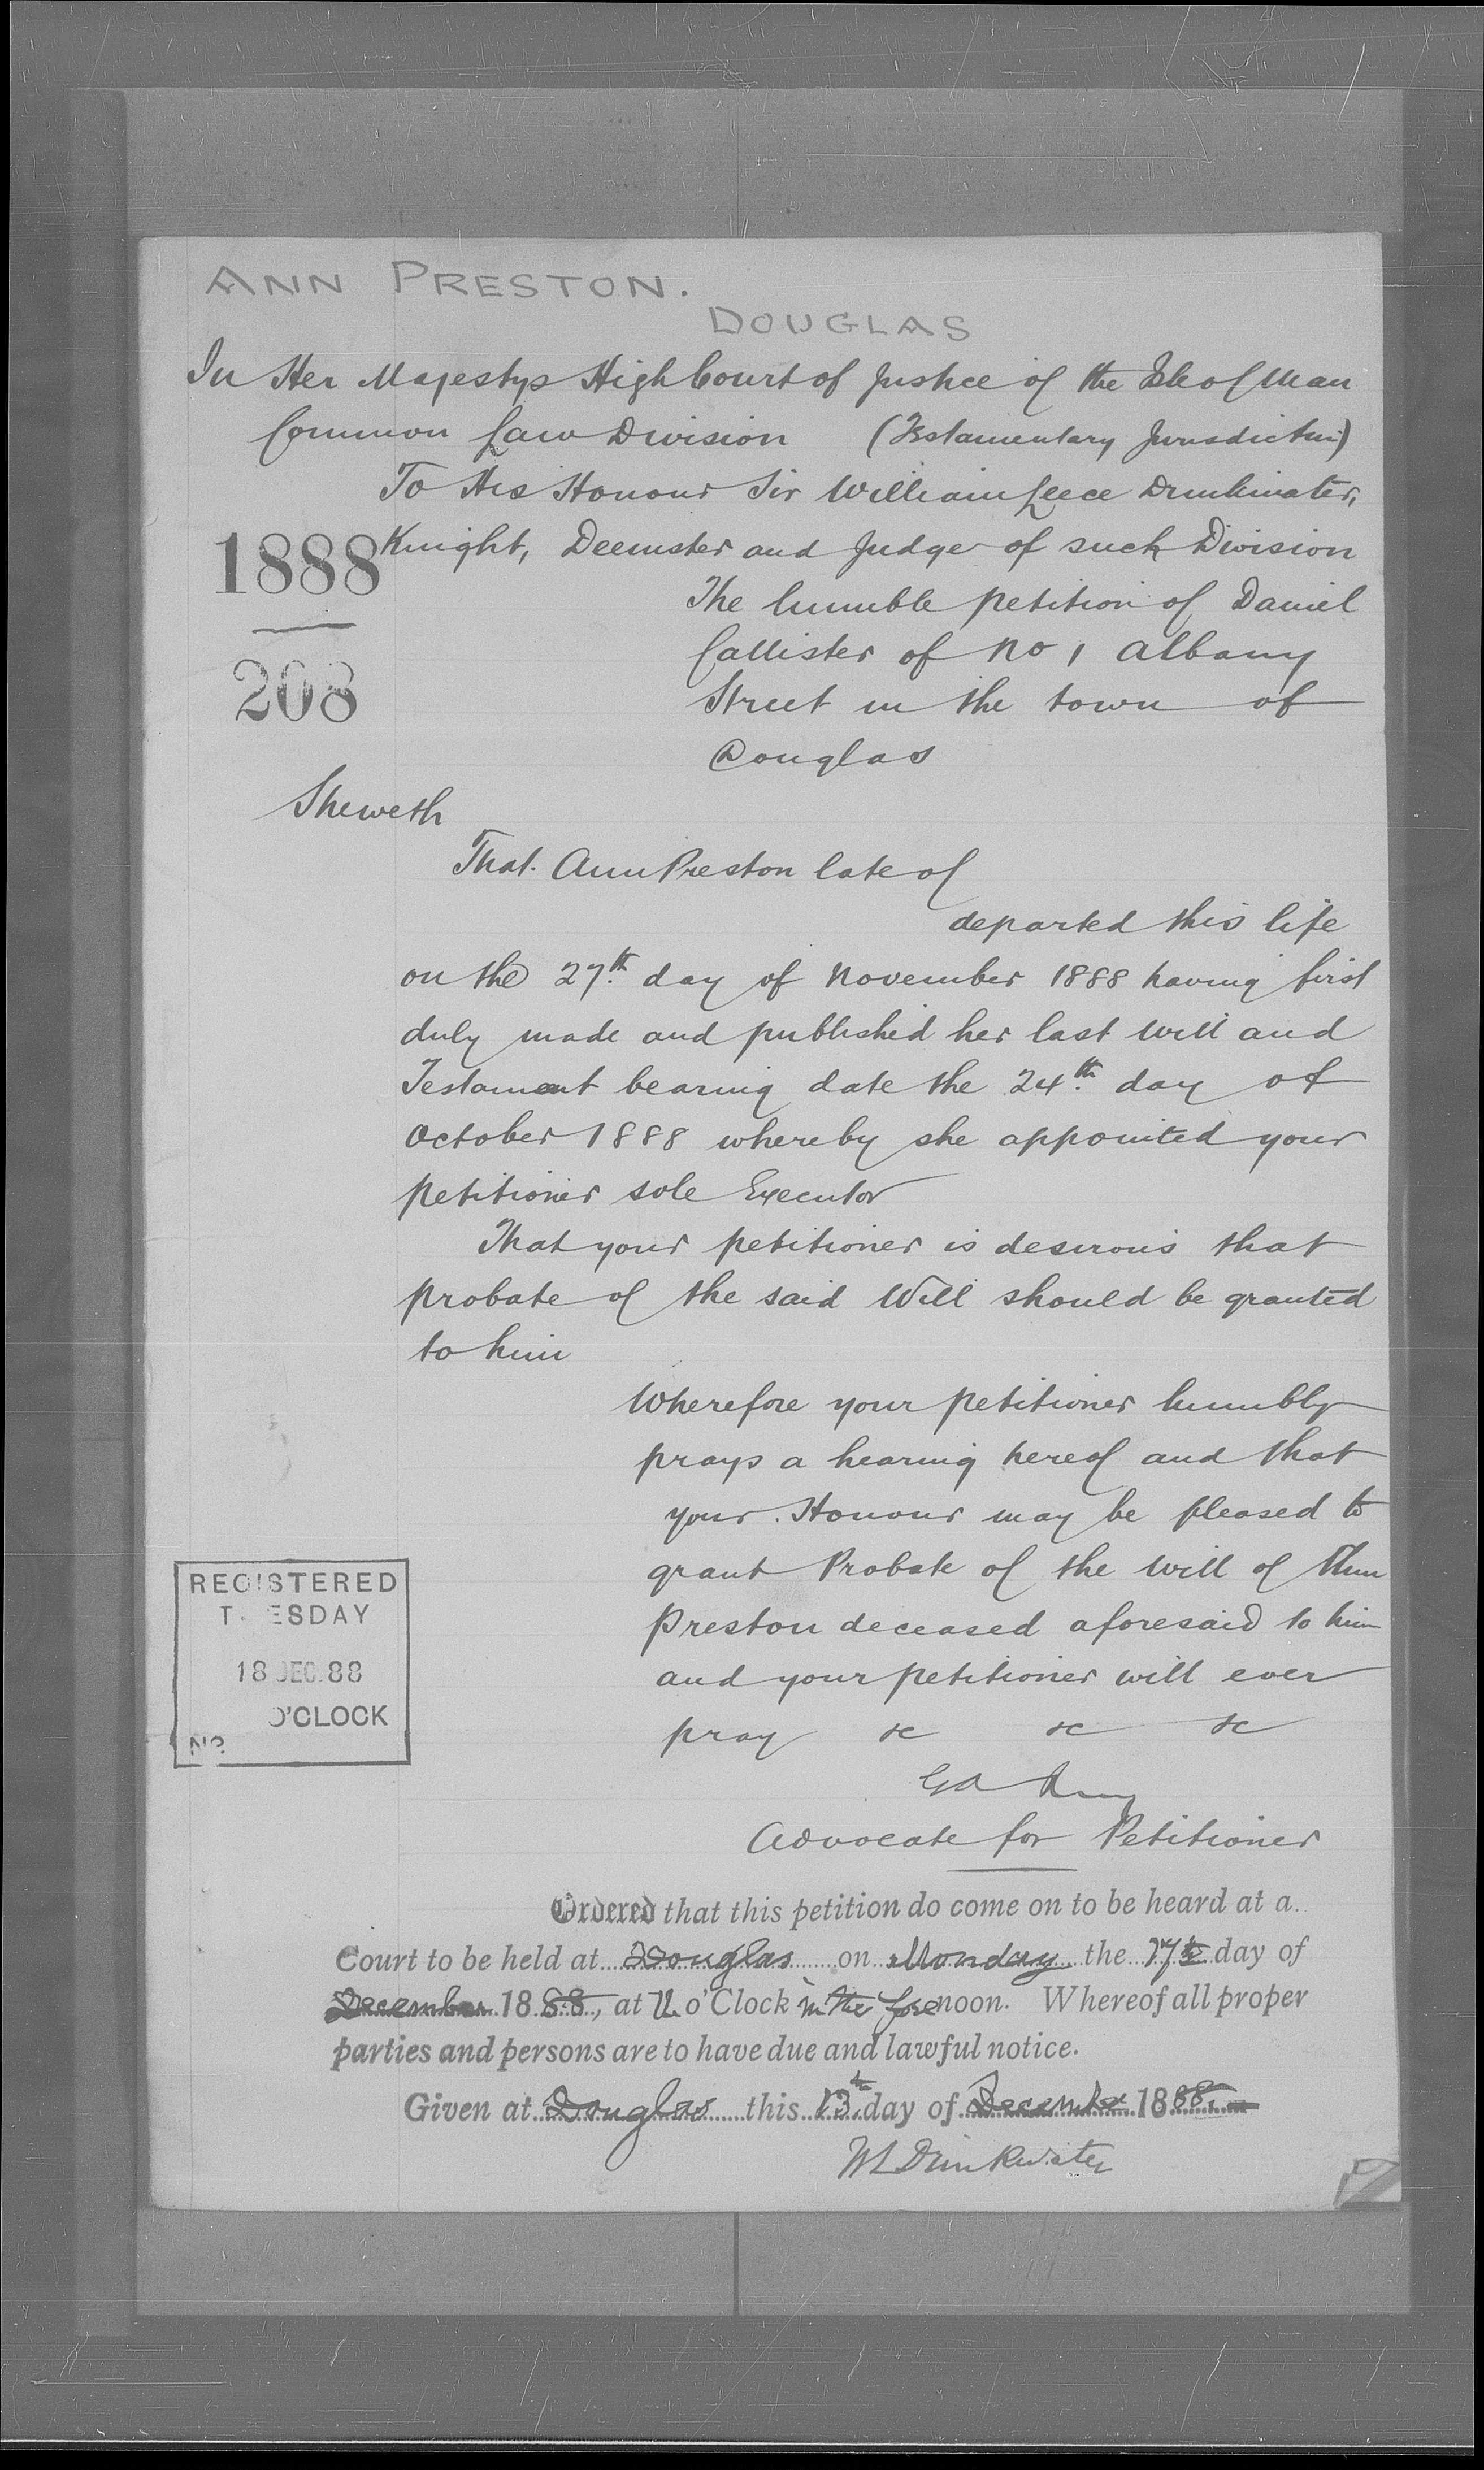 ANN PRESTON.
DOUGLAS
In Her Majestys High Court of Justice of the Isle of Man
Common Law Division (Testamentary Jurisdiction)
To His Honour Sir William Leece Drinkwater,
Knight, Deemster and Judge of such Division
1888
208
The humble petition of Daniel
Callister of No 1 Albany
Street in the town of
Douglas
Sheweth
That Ann Preston late of
departed this life
on the 27th day of November 1888 having first
duly made and published her last Will and
Testament bearing date the 24th day of
October 1888 whereby she appointed your
petitioner sole Executor
That your petitioner is desirous that
probate of the said Will should be granted
to him
Wherefore your petitioner humbly
prays a hearing hereof and that
your Honour may be pleased to
grant Probate of the Will of Ann
Preston deceased aforesaid to him
and your petitioner will ever
pray &c &c &c
Advocate for Petitioner
REGISTERED
TUESDAY
18 DEC. 88
O'CLOCK
No.
Ordered that this petition do come on to be heard at a
Court to be held at Douglas on Monday the 17th day of
December 1888, at 11 o'Clock in the forenoon. Whereof all proper
parties and persons are to have due and lawful notice.
Given at Douglas this 13th day of December 1888.
WL Drinkwater